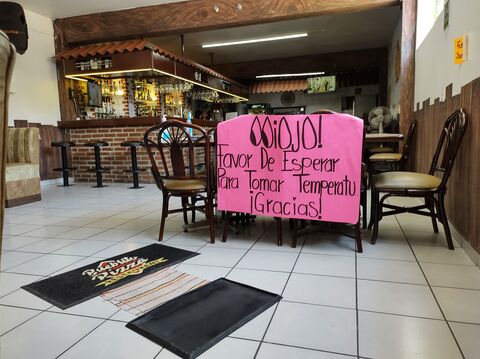 ¡¡OJO!
Favor De Esperar
Para Tomar Temperatu
¡Gracias!
Pueblito
Pizza